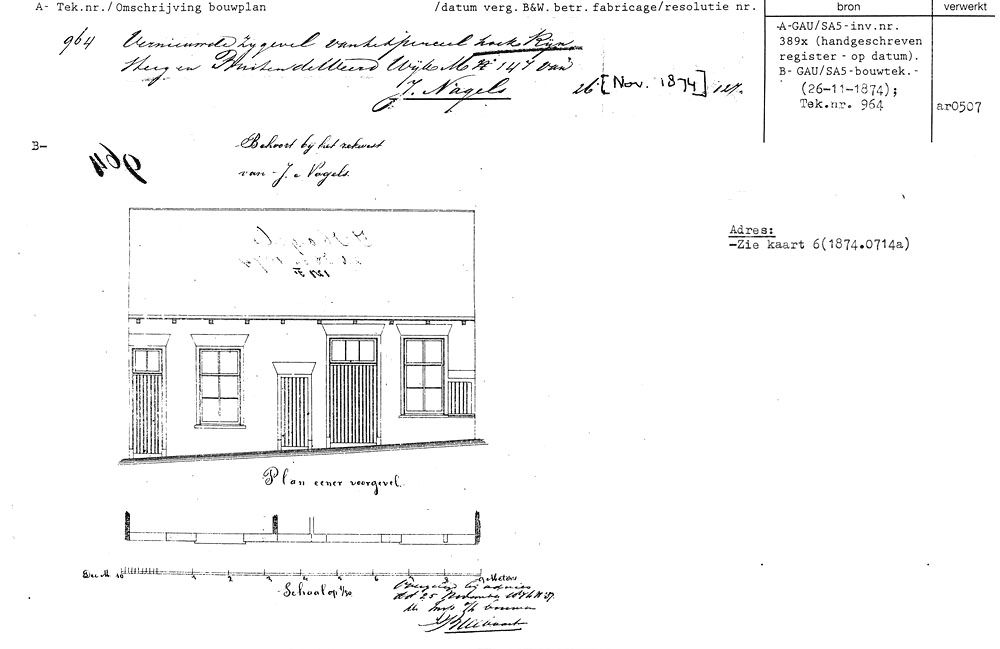 A- Tek.nr./Omschrijving bouwplan /datum verg. B&W. betr. fabricage/resolutie nr.
bron
verwerkt
964 Vernieuwde zijgevel van het perceel hoek Rijn
Steeg en Buiten de Weerd Wijk M No 147 van
J. Nagels 26 [Nov. 1874] 127.
A-GAU/SA5-inv.nr.
389x (handgeschreven
register - op datum).
B- GAU/SA5-bouwtek.-
(26-11-1874);
Tek.nr. 964
ar0507
B-
964
Behoort bij het rekwest
van J. Nagels.
Adres:
-Zie kaart 6(1874.0714a)
Plan eener voorgevel.
Dec. M. 10 1 2 3 4 5 6 7 8 9 Meters
Schaal op 1/50
bij advies
dd 25 November 1874 N